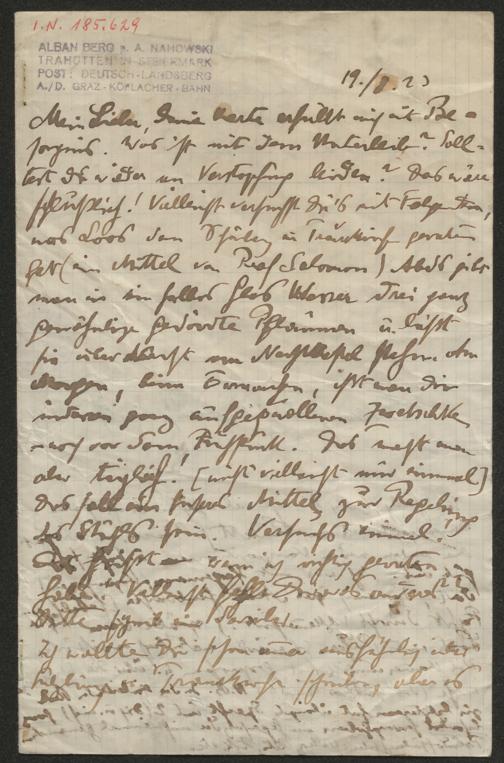 I.N. 185.629
ALBAN BERG p. A. NAHOWSKI
TRAHÜTTEN IN STEIERMARK
POST: DEUTSCH-LANDSBERG
A./D. GRAZ-KÖFLACHER-BAHN
19./8. 23
Mein Lieber, Deine Karte erfüllt mich mit Be-
sorgnis. Was ist mit dem Unterleib? Soll-
test Du wieder an Verstopfung leiden? Das wäre
scheußlich! Vielleicht versuchst Du's mit Folgendem,
was Loos dem Schönberg in Traunkirchen geraten
hat (ein Mittel von Prof Salomon) Abds gibt
man in ein halbes Glas Wasser drei ganz
gewöhnliche gedörrte Pflaumen u. läßt
sie über Nacht am Nachtkastl stehn. Am
Morgen, beim Erwachen, ißt man die
inzwischen ganz aufgequollenen Zwetschken
noch vor dem Frühstück. Das macht man
aber täglich. (nicht vielleicht nur einmal)
Das soll ein Mittel zur Regelung
des Stuhls sein. Versuchs einmal!
wenn ich richtig geraten
habe. Vielleicht
Bitte
Ich wollte Dir schon immer ausführlich über
schreiben, aber es